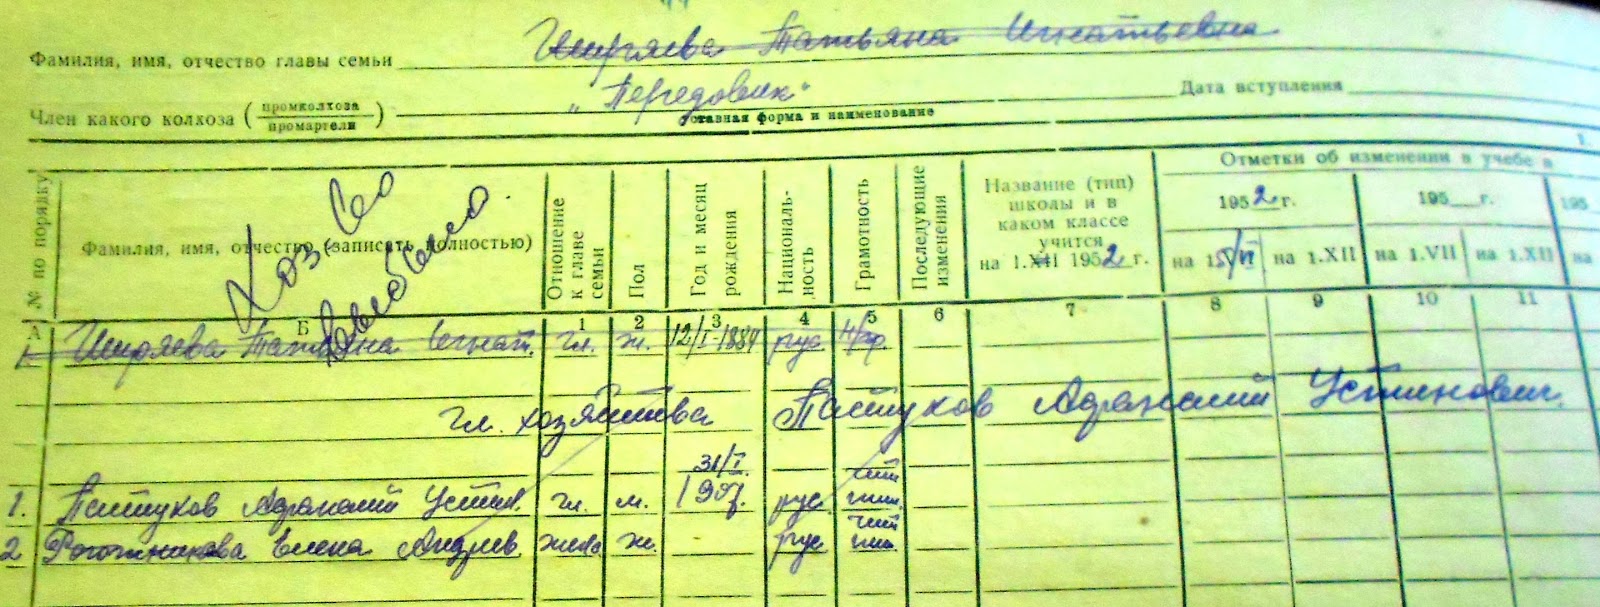 Ширяева Татьяна Игнатьевна
Фамилия, имя, отчество главы семьи
„Передовик“
Дата вступления
Член какого колхоза (промколхоза
промартели)
уставная форма и наименование
1.
Отметки об изменении в учебе в
№ по порядку
Фамилия, имя, отчество (записать полностью)
Хоз-во
выбыло.
Отношение к главе семьи
Пол
Год и месяц рождения
Националь-ность
Грамотность
Последующие изменения
Название (тип)
школы и в
каком классе
учится
на 1.XII 1952 г.
1952 г.
195 г.
195
на 1 VI
на 1.XII
на 1.VII
на 1.XII
на
А Б 1 2 3 4 5 6 7 8 9 10 11
1 Ширяева Татьяна Игнат. гл. ж. 12/I-1884 рус н/гр.
гл. хозяйства Пастухов Афанасий Устинович.
31/I
1. Пастухов Афанасий Устин. гл. м. 1907. рус
2 Рогожникова Елена Андрев жена ж. рус